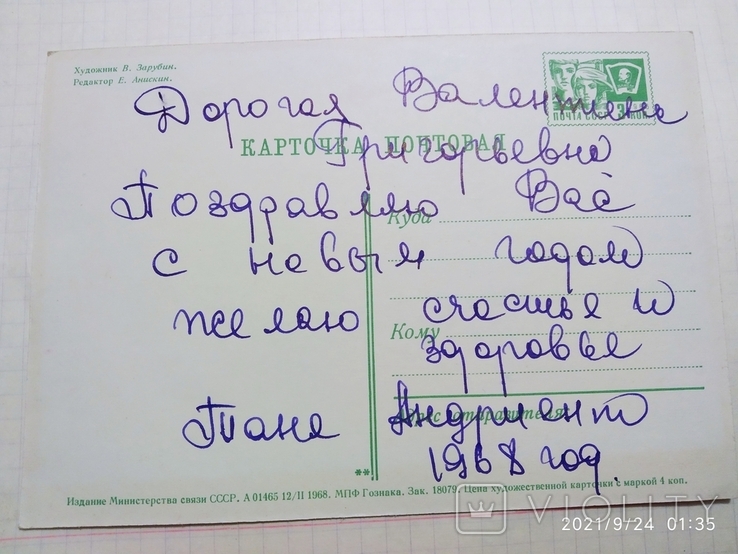 Художник В. Зарубин.
Редактор Е. Анискин.
ПОЧТА СССР 3 КОП
КАРТОЧКА ПОЧТОВАЯ
Дорогая Валентина
Григорьевна
Поздравляю Вас
с новым годом
желаю счастье и
здоровье
Таня
1968 год.
Куда
Кому
Адрес отправителя:
**
Издание Министерства связи СССР. А 01465 12/II 1968. МПФ Гознака. Зак. 18079. Цена художественной карточки с маркой 4 коп.
VIOLITY
2021/9/24 01:35